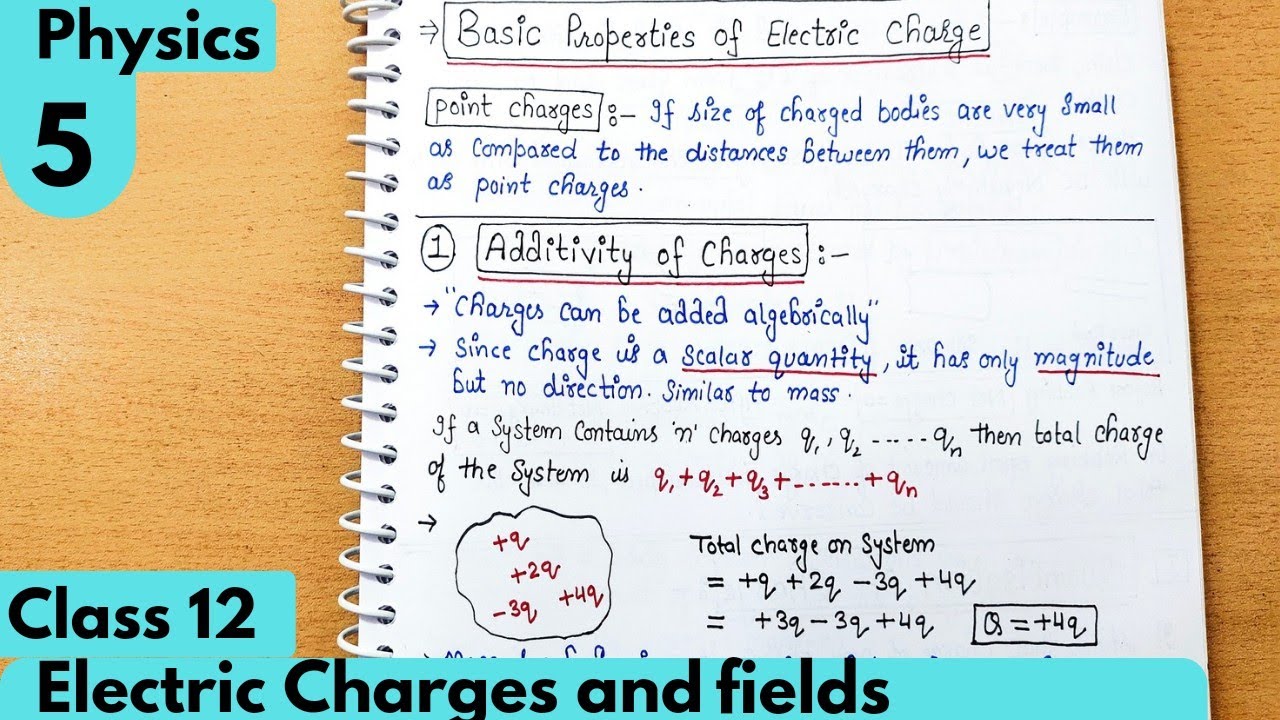 Physics
5
⇒ Basic Properties of Electric Charge
point charges :- If size of charged bodies are very small
as compared to the distances between them, we treat them
as point charges.
① Additivity of Charges :-
→ "Charges can be added algebrically"
→ Since charge is a scalar quantity, it has only magnitude
but no direction. Similar to mass.
If a System contains 'n' charges q₁, q₂ ----- qₙ then total charge
of the System is q₁+q₂+q₃+-------+qₙ
→
+q
+2q
-3q +4q
Total charge on System
= +q +2q -3q +4q
= +3q -3q +4q Q = +4q
Class 12
Electric Charges and fields